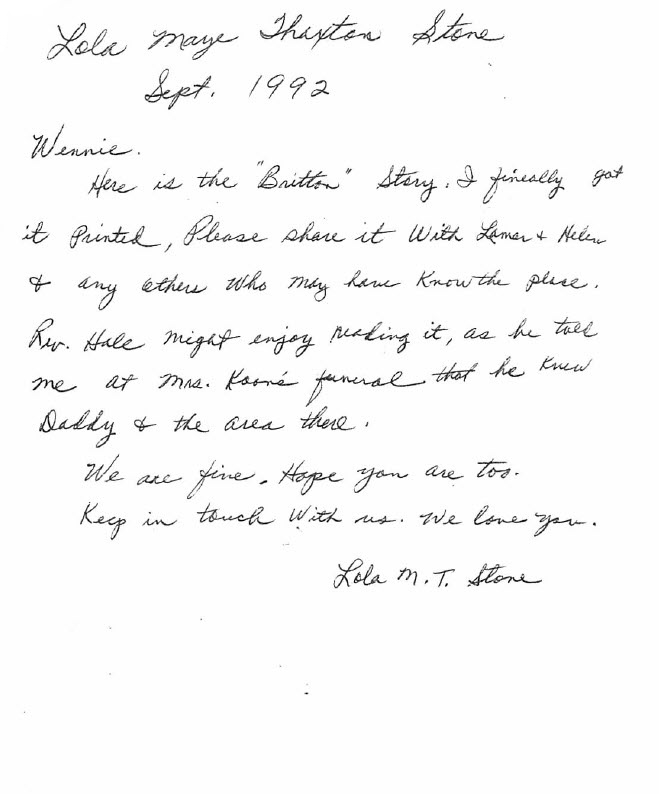 Lola Maye Thaxton Stone
Sept. 1992
Wennie.
Here is the "Britton" Story. I fineally got
it Printed, Please share it With Lamar & Helen
& any others Who may have Know the place.
Rev. Hale might enjoy reading it, as he told
me at Mrs. Koon's funeral that he Knew
Daddy & the area there.
We are fine. Hope you are too.
Keep in touch With us. We love you.
Lola M. T. Stone